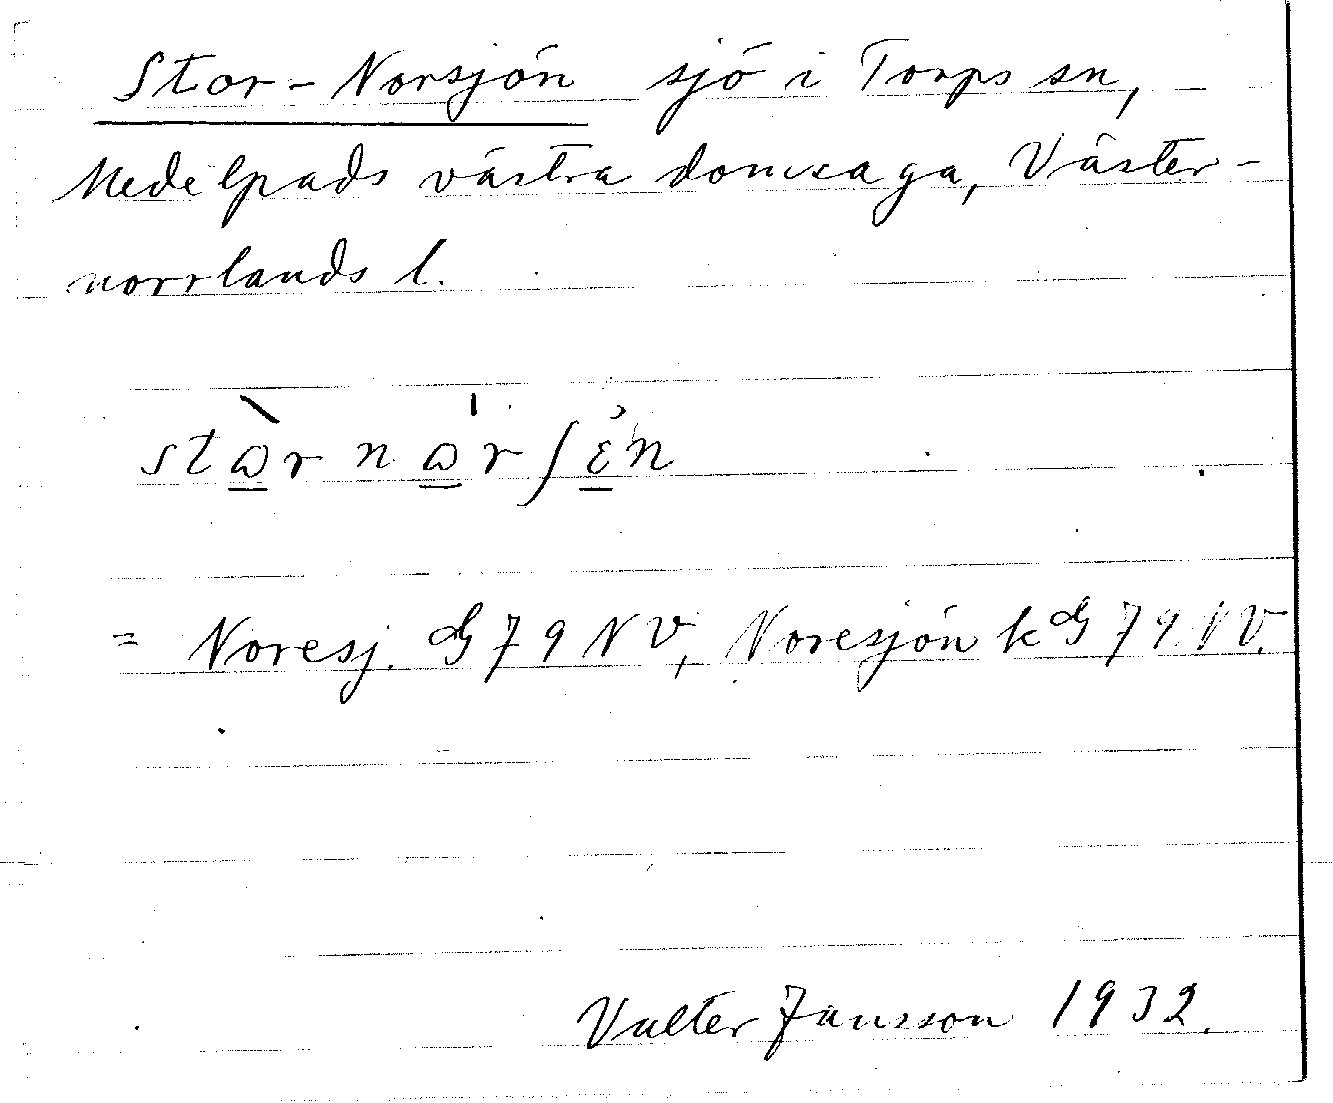 Stor-Norsjön sjö i Torps sn,
Medelpads västra domsaga, Väster-
norrlands l.
= Noresj. G 79 NV, Noresjön k G 79 NV.
Valter Jansson 1932.